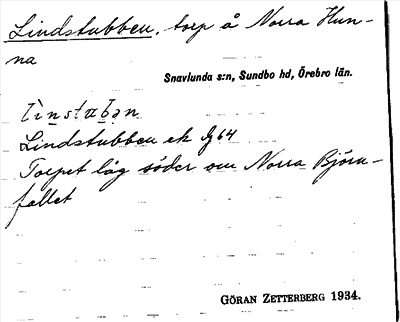 Lindstubben, torp å Norra Hun-
na
Snavlunda s:n, Sundbo hd, Örebro län.
Lindstubben ek Jg 64
Torpet låg söder om Norra Björn-
fallet
GÖRAN ZETTERBERG 1934.